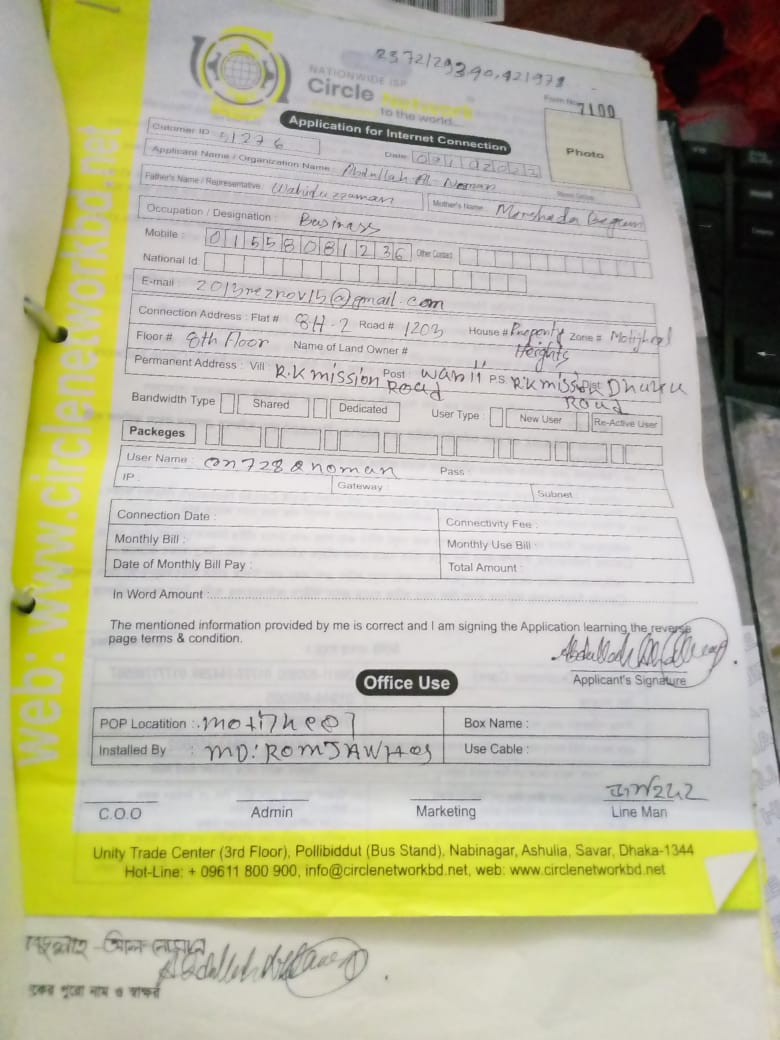 NATIONWIDE ISP
Circle Network
to the world...
Form No. 7100
Application for Internet Connection
Photo
Customer ID: 51276
Date:
Applicant Name / Organization Name: Abdullah Al- Noman
Father's Name / Representative: Wahiduzzaman Mother's Name: Morsheda Begum
Occupation / Designation : Business
Mobile : 01558081236 Other Contact
National Id
E-mail : 2013reznov15@gmail.com
Connection Address : Flat # 8H-2 Road # 1203 House # Property Heights Zone # Motijheel
Floor # 8th Floor Name of Land Owner #
Permanent Address : Vill R.K mission Road Post : wari P.S R.K mission Road Dist Dhaka
Bandwidth Type Shared Dedicated User Type : New User Re-Active User
Packeges
User Name : cn728@noman Pass :
IP : Gateway : Subnet :
Connection Date : Connectivity Fee :
Monthly Bill : Monthly Use Bill :
Date of Monthly Bill Pay : Total Amount :
In Word Amount :
The mentioned information provided by me is correct and I am signing the Application learning the reverse
page terms & condition.
Applicant's Signature
Office Use
POP Locatition : motijheel Box Name :
Installed By : MD: ROMJAN Use Cable :
C.O.O Admin Marketing Line Man
Unity Trade Center (3rd Floor), Pollibiddut (Bus Stand), Nabinagar, Ashulia, Savar, Dhaka-1344
Hot-Line: + 09611 800 900, info@circlenetworkbd.net, web: www.circlenetworkbd.net
web: www.circlenetworkbd.net
পুরো নাম ও স্বাক্ষর